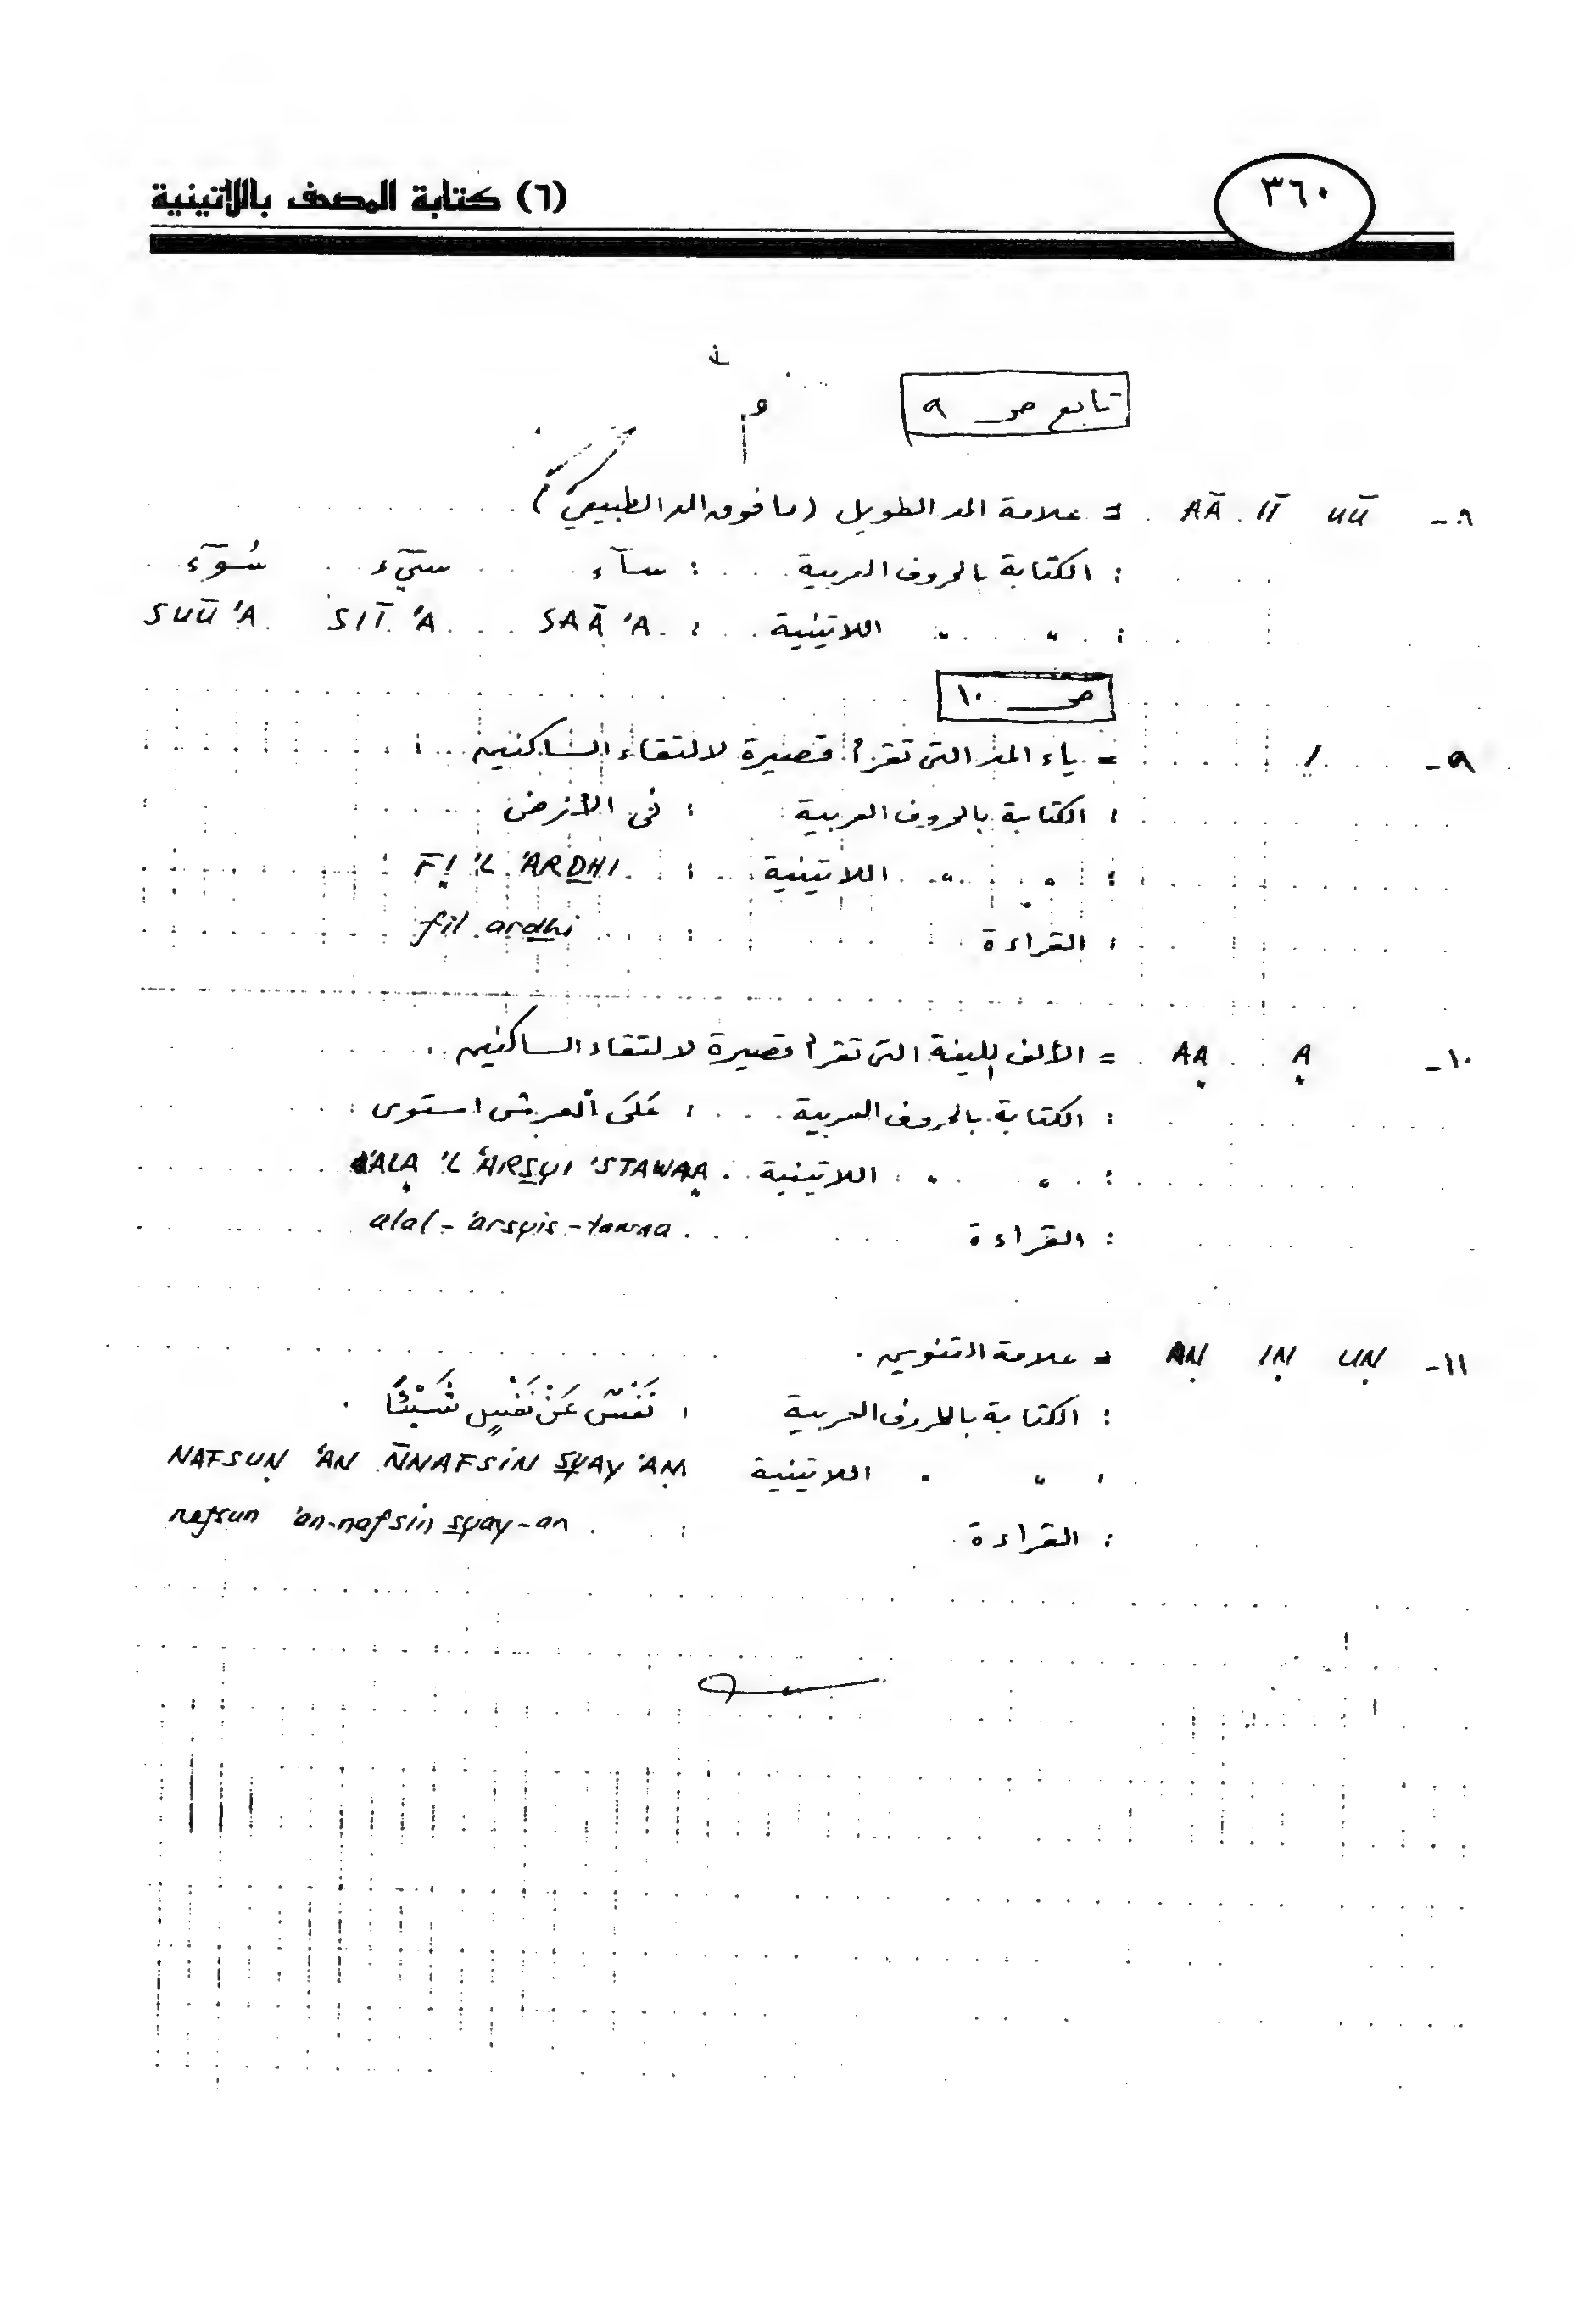 ٣٦٠ (٦) كتابة المصحف باللاتينية
تابع ص ٩
٨- AĀ IĪ UŪ = علامة المد الطويل (ما فوق المد الطبيعي)
: الكتابة بالحروف العربية : سآء سيٓء سُوٓء
: " " اللاتينية : SAĀ'A SIĪ'A SUŪ'A
ص ١٠
٩- Ị = ياء المد التى تقرأ قصيرة لالتقاء الساكنين
: الكتابة بالحروف العربية : فى الأرض
: " " اللاتينية : FỊ 'L 'ARDHI
: القراءة : fil ardhi
١٠- Ạ AẠ = الألف اللينة التى تقرأ قصيرة لالتقاء الساكنين
: الكتابة بالحروف العربية : عَلَى ٱلعرش استوى
: " " اللاتينية 'ALẠ 'L 'ARSYI 'STAWAẠ
: القراءة alal-'arsyis-tawaa
١١- AṆ IṆ UṆ = علامة التنوين .
: الكتابة بالحروف العربية : نَفْسٌ عَنْ نَفْسٍ شَيْئًا .
: " " اللاتينية NAFSUṆ 'AN N̄NAFSIN SYAY'AṆ
: القراءة : nafsun 'an-nafsin syay-an